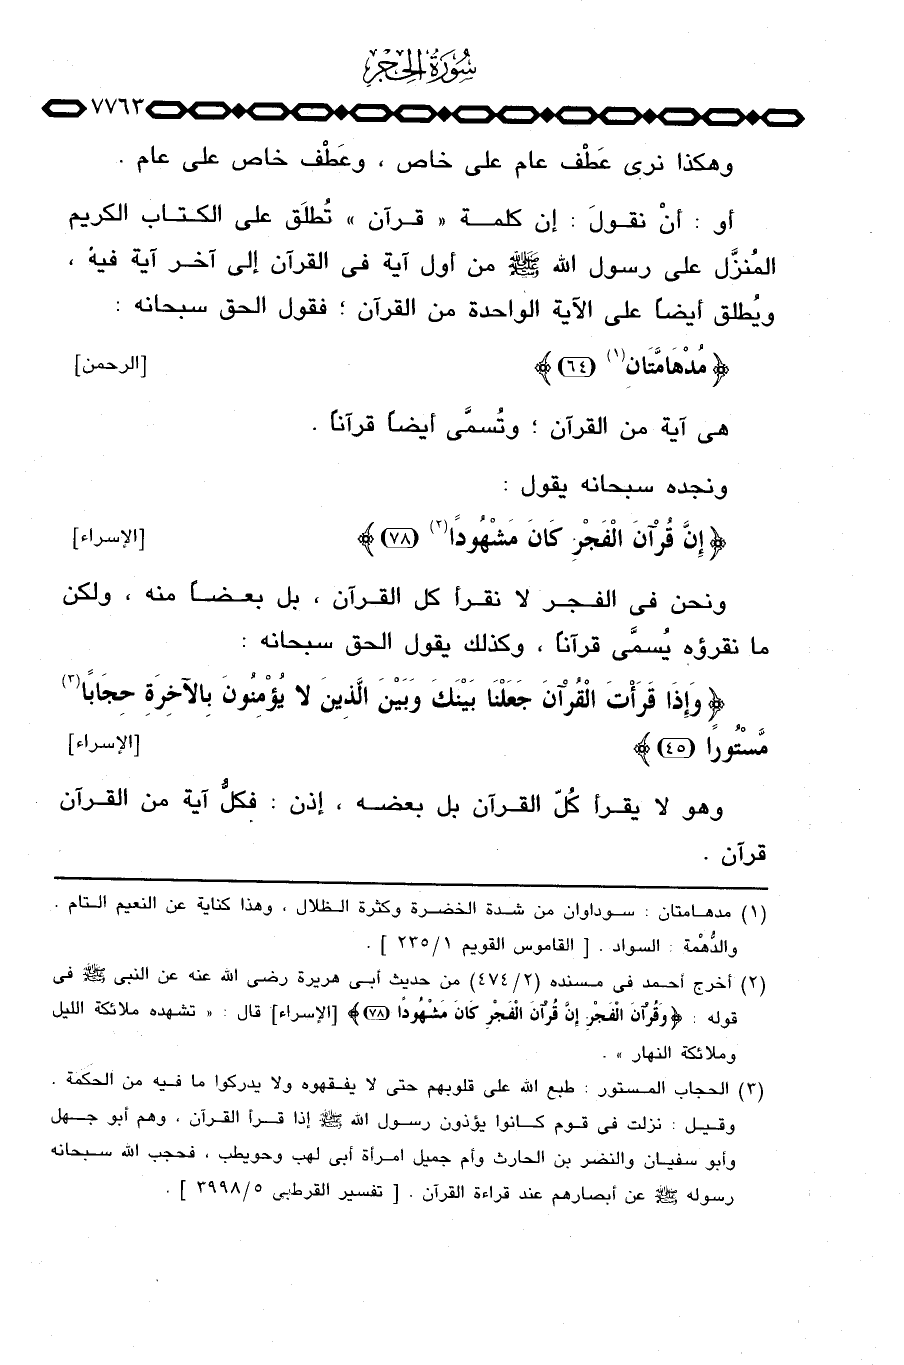 سُورَةُ الحِجرِ
٧٧٦٣
وهكذا نرى عَطْف عام على خاص ، وعَطْف خاص على عام .
أو : أنْ نقـولَ : إن كلمـــة « قـرآن » تُطلَق على الكـتـاب الكريم
المُنزَّل على رسول الله ﷺ من أول آية فى القرآن إلى آخـر آية فيهْ ،
ويُطلق أيضاً على الآية الواحدة من القرآن ؛ فقول الحق سبحانه :
﴿ مُدْهَامَّتَان (١) (٦٤) ﴾ [الرحمن]
هى آية من القرآن ؛ وتُسمَّى أيضاً قرآناً .
ونجده سبحانه يقول :
﴿ إِنَّ قُرْآنَ الْفَجْرِ كَانَ مَشْهُودًا (٢) (٧٨) ﴾ [الإسراء]
ونحن فى الفـجـر لا نقـرأ كل القـرآن ، بل بعـضـاً منه ، ولكن
ما نقرؤه يُسمَّى قرآناً ، وكذلك يقول الحق سبحانه :
﴿ وَإِذَا قَرَأْتَ الْقُرْآنَ جَعَلْنَا بَيْنَكَ وَبَيْنَ الَّذِينَ لا يُؤْمِنُونَ بِالآخِرَةِ حِجَابًا (٣)
مَّسْتُورًا (٤٥) ﴾ [الإسراء]
وهو لا يقـرأ كُلّ القـرآن بل بعضـه ، إذن : فكلُّ آية من القرآن
قرآن .
(١) مدهـامتان : سـوداوان من شدة الخضرة وكثرة الـظلال ، وهذا كناية عن النعيم الـتام .
والدُّهْمة : السواد . [ القاموس القويم ٢٣٥/١ ] .
(٢) أخرج أحـمد فى مـسنده (٤٧٤/٢) من حديث أبـى هريرة رضى الله عنه عن النبى ﷺ فى
قوله : ﴿ وَقُرْآنَ الْفَجْرِ إِنَّ قُرْآنَ الْفَجْرِ كَانَ مَشْهُودًا (٧٨) ﴾ [الإسراء] قال : « تشهده ملائكة الليل
وملائكة النهار » .
(٣) الحجاب المـستور : طبع الله على قلوبهم حتى لا يفـقهوه ولا يدركوا ما فـيه من الحكمة .
وقـيـل : نزلت فى قوم كـانوا يؤذون رسـول الله ﷺ إذا قـرأ القرآن ، وهم أبو جـهل
وأبو سفيـان والنضر بن الحارث وأم جميل امـرأة أبى لهب وحويطب ، فـحجب الله سـبحانه
رسوله ﷺ عن أبصارهم عند قراءة القرآن . [ تفسير القرطبى ٣٩٩٨/٥ ] .